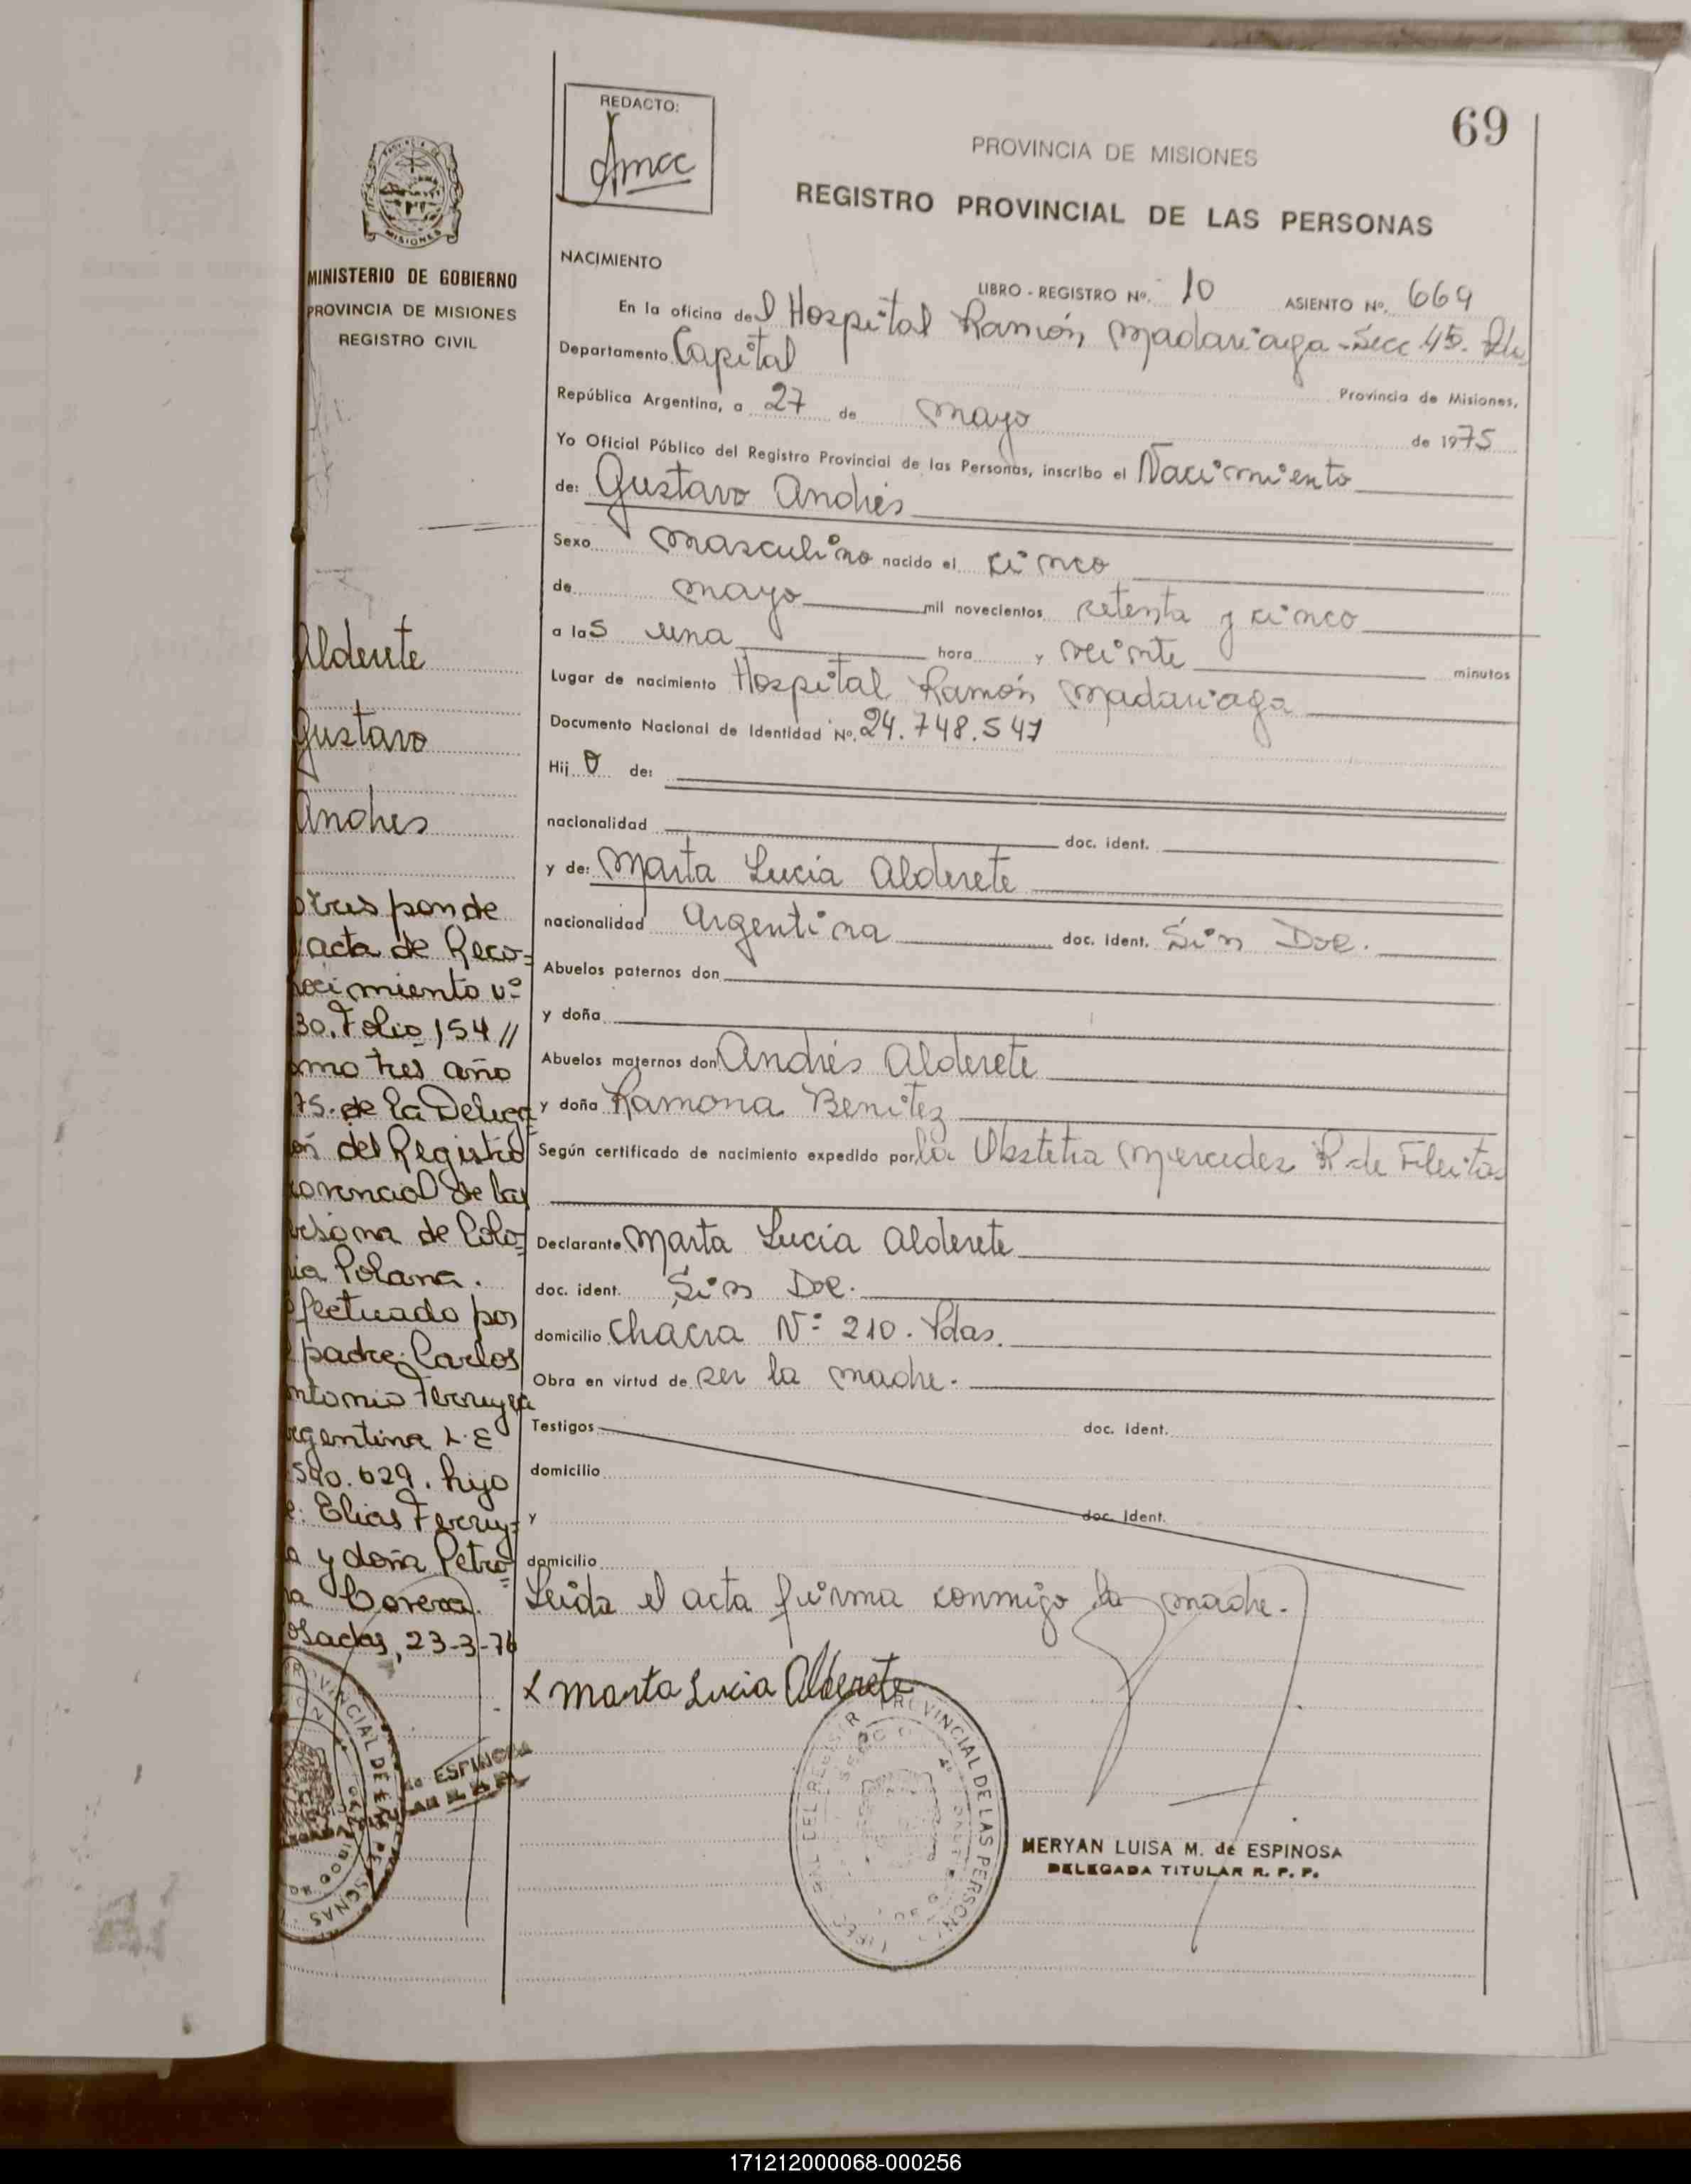 69
REDACTO:
PROVINCIA DE MISIONES
REGISTRO PROVINCIAL DE LAS PERSONAS
MISIONES
MINISTERIO DE GOBIERNO
PROVINCIA DE MISIONES
REGISTRO CIVIL
Alderete
Gustavo
Andres
responde
acta de Reco=
nocimiento nº
30. Folio 154 //
tomo tres año
75. de la Delega
del Registro
Provincial de las
Persona de Colo=
nia Polana.
efectuado por
padre: Carlos
Antonio Ferreyra
Argentina L.E
590.629. hijo
de: Elias Ferrey=
y doña Petro=
Posadas, 23-3-76
NACIMIENTO
LIBRO - REGISTRO Nº. 10 ASIENTO Nº. 669
En la oficina del Hospital Ramón Madariaga - Secc 4ta.
Departamento Capital
Provincia de Misiones,
República Argentina, a 27 de mayo de 1975
Yo Oficial Público del Registro Provincial de las Personas, inscribo el Nacimiento
de: Gustavo Andrés
Sexo masculino nacido el cinco
de mayo mil novecientos setenta y cinco
a las una hora y veinte minutos
Lugar de nacimiento Hospital Ramón Madariaga
Documento Nacional de Identidad Nº. 24.748.547
Hij o de:
nacionalidad doc. ident.
y de: Marta Lucia Alderete
nacionalidad Argentina doc. ident. Sin Doc.
Abuelos paternos don
y doña
Abuelos maternos don Andrés Alderete
y doña Ramona Benitez
Según certificado de nacimiento expedido por la Obstetra Mercedes R de Fleitas
Declarante Marta Lucia Alderete
doc. ident. Sin Doc.
domicilio Chacra Nº 210. Pdas.
Obra en virtud de ser la madre.
Testigos doc. ident.
domicilio
y doc. ident.
domicilio
Leida el acta firma conmigo la madre.
x Marta Lucia Alderete
PROVINCIAL DE LAS PERSONAS
MERYAN LUISA M. de ESPINOSA
DELEGADA TITULAR R. P. P.
171212000068-000256